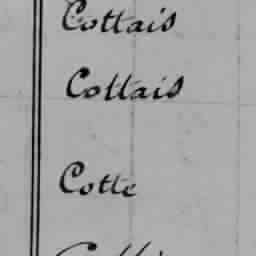 Cottais
Cottais
Cotte